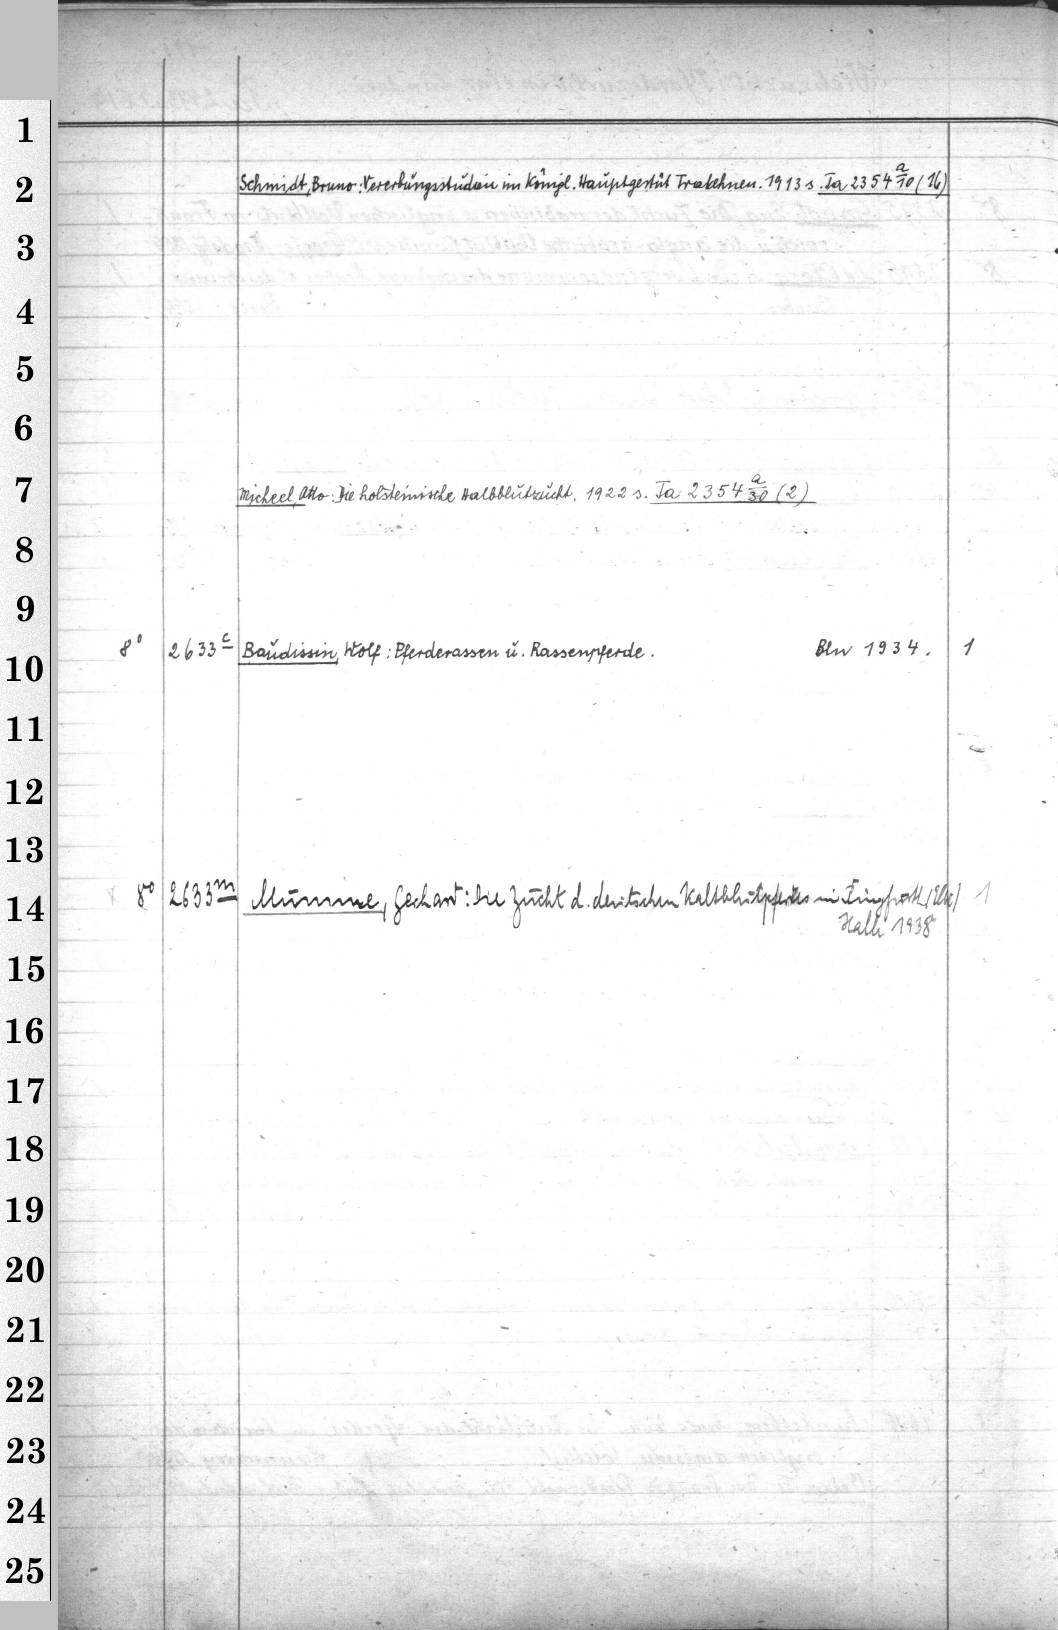 1
2
Schmidt, Bruno: Vererbungsstudien im Königl. Hauptgestüt Trakehnen. 1913 s. Ta 2354 a/10 (16)
3
4
5
6
7
Micheel, Otto: Die holsteinische Halbblutzucht. 1922 s. Ta 2354 a/30 (2)
8
9
8° 2633 c Baudissin, Wolf: Pferderassen u. Rassenpferde. Bln 1934. 1
10
11
12
13
14
8° 2633 m Mumme, Gechart: Die Zucht d. deutschen Kaltblutpferdes im (Elbe) 1
Halle 1938
15
16
17
18
19
20
21
22
23
24
25